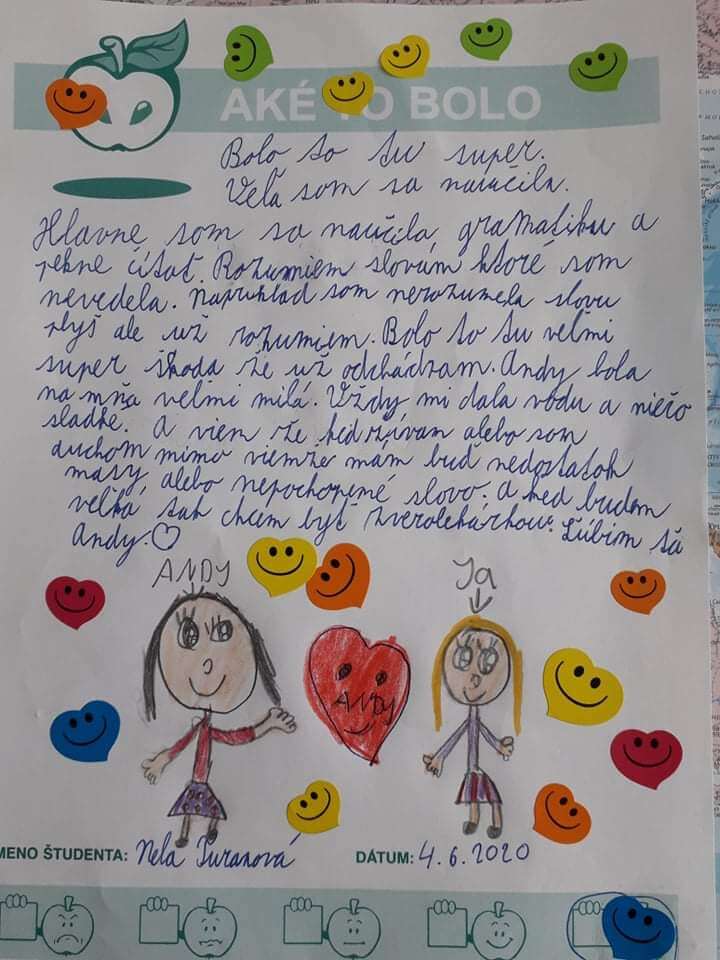 AKÉ TO BOLO
Bolo to tu super.
Veľa som sa naučila.
Hlavne som sa naučila gramatiku a
pekne čítať. Rozumiem slovám ktoré som
nevedela. Napríklad som nerozumela slovu
plyš ale už rozumiem. Bolo to tu veľmi
super škoda že už odchádzam. Andy bola
na mňa veľmi milá. Vždy mi dala vodu a niečo
sladké. A viem že keď zívam alebo som
duchom mimo viemže mám buď nedostatok
masy alebo nepochopené slovo. A keď budem
veľká tak chcem byť zverolekárkou. Ľúbim ťa
Andy.
ANDY
Ja
ANDY
MENO ŠTUDENTA: Nela Turanová
DÁTUM: 4.6.2020